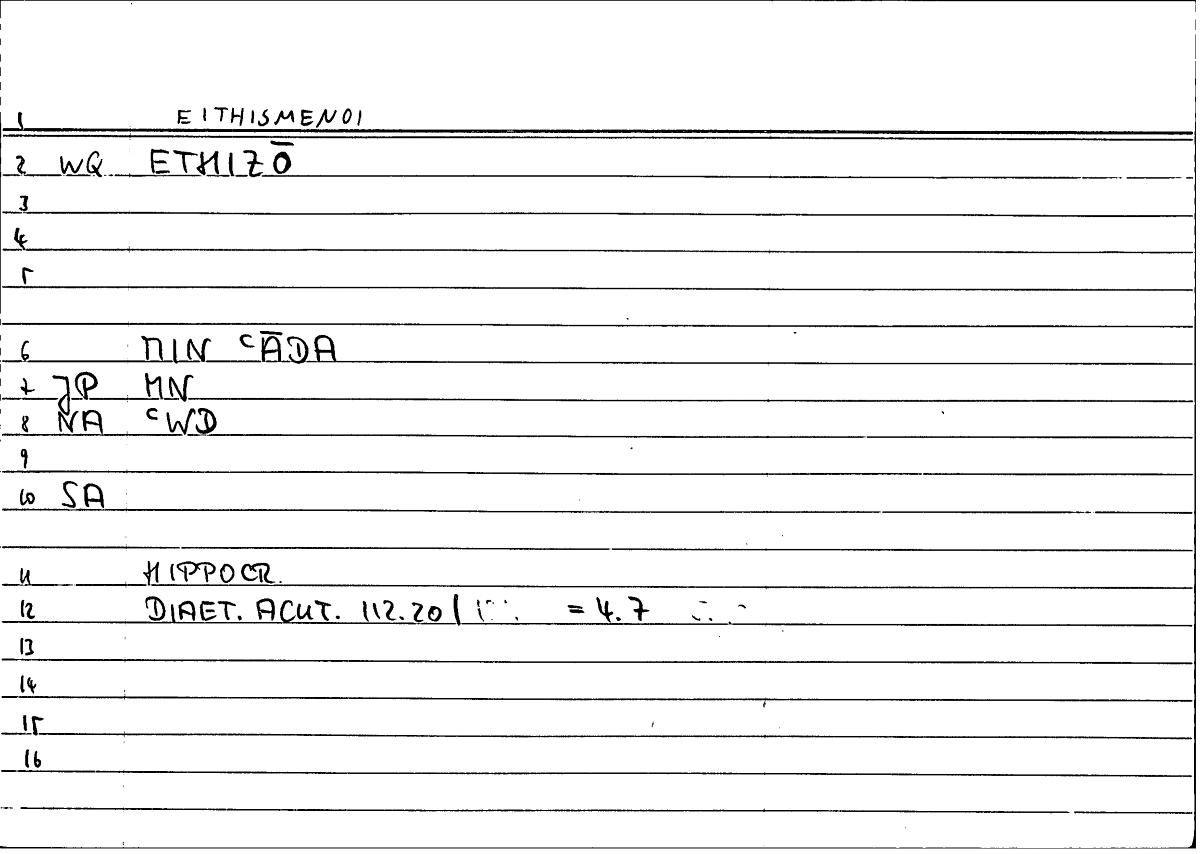 1 EITHISMENOI
2 WQ ETHIZŌ
3
4
5
6 MIN ᶜĀDA
7 JP MN
8 NA ᶜWD
9
10 SA
11 HIPPOCR.
12 DIAET. ACUT. 112.20 = 4.7
13
14
15
16